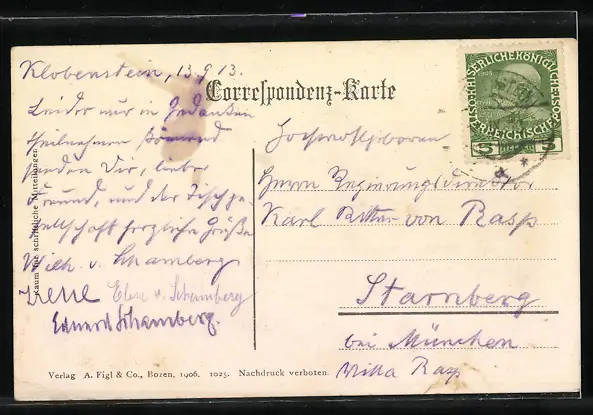 Klobenstein, 13.9.13.
Correspondenz-Karte
Leider nur in Gedanken
theilnehmen könnend
senden Dir, lieber
Freund, und der Tischge-
sellschaft herzliche Grüße
Wilh. v. Schamberg
Irene Elsa v. Schamberg
Eduard Schamberg.
Raum für schriftliche Mitteilungen
KAISERLICHE KÖNIGLICHE
ÖSTERREICHISCHE
5 HELLER 5
Hochwohlgeboren
Herrn Regierungsdirector
Karl Ritter von Rasp
Starnberg
bei München
Villa Rasp
Verlag A. Figl & Co., Bozen, 1906. 1025. Nachdruck verboten.